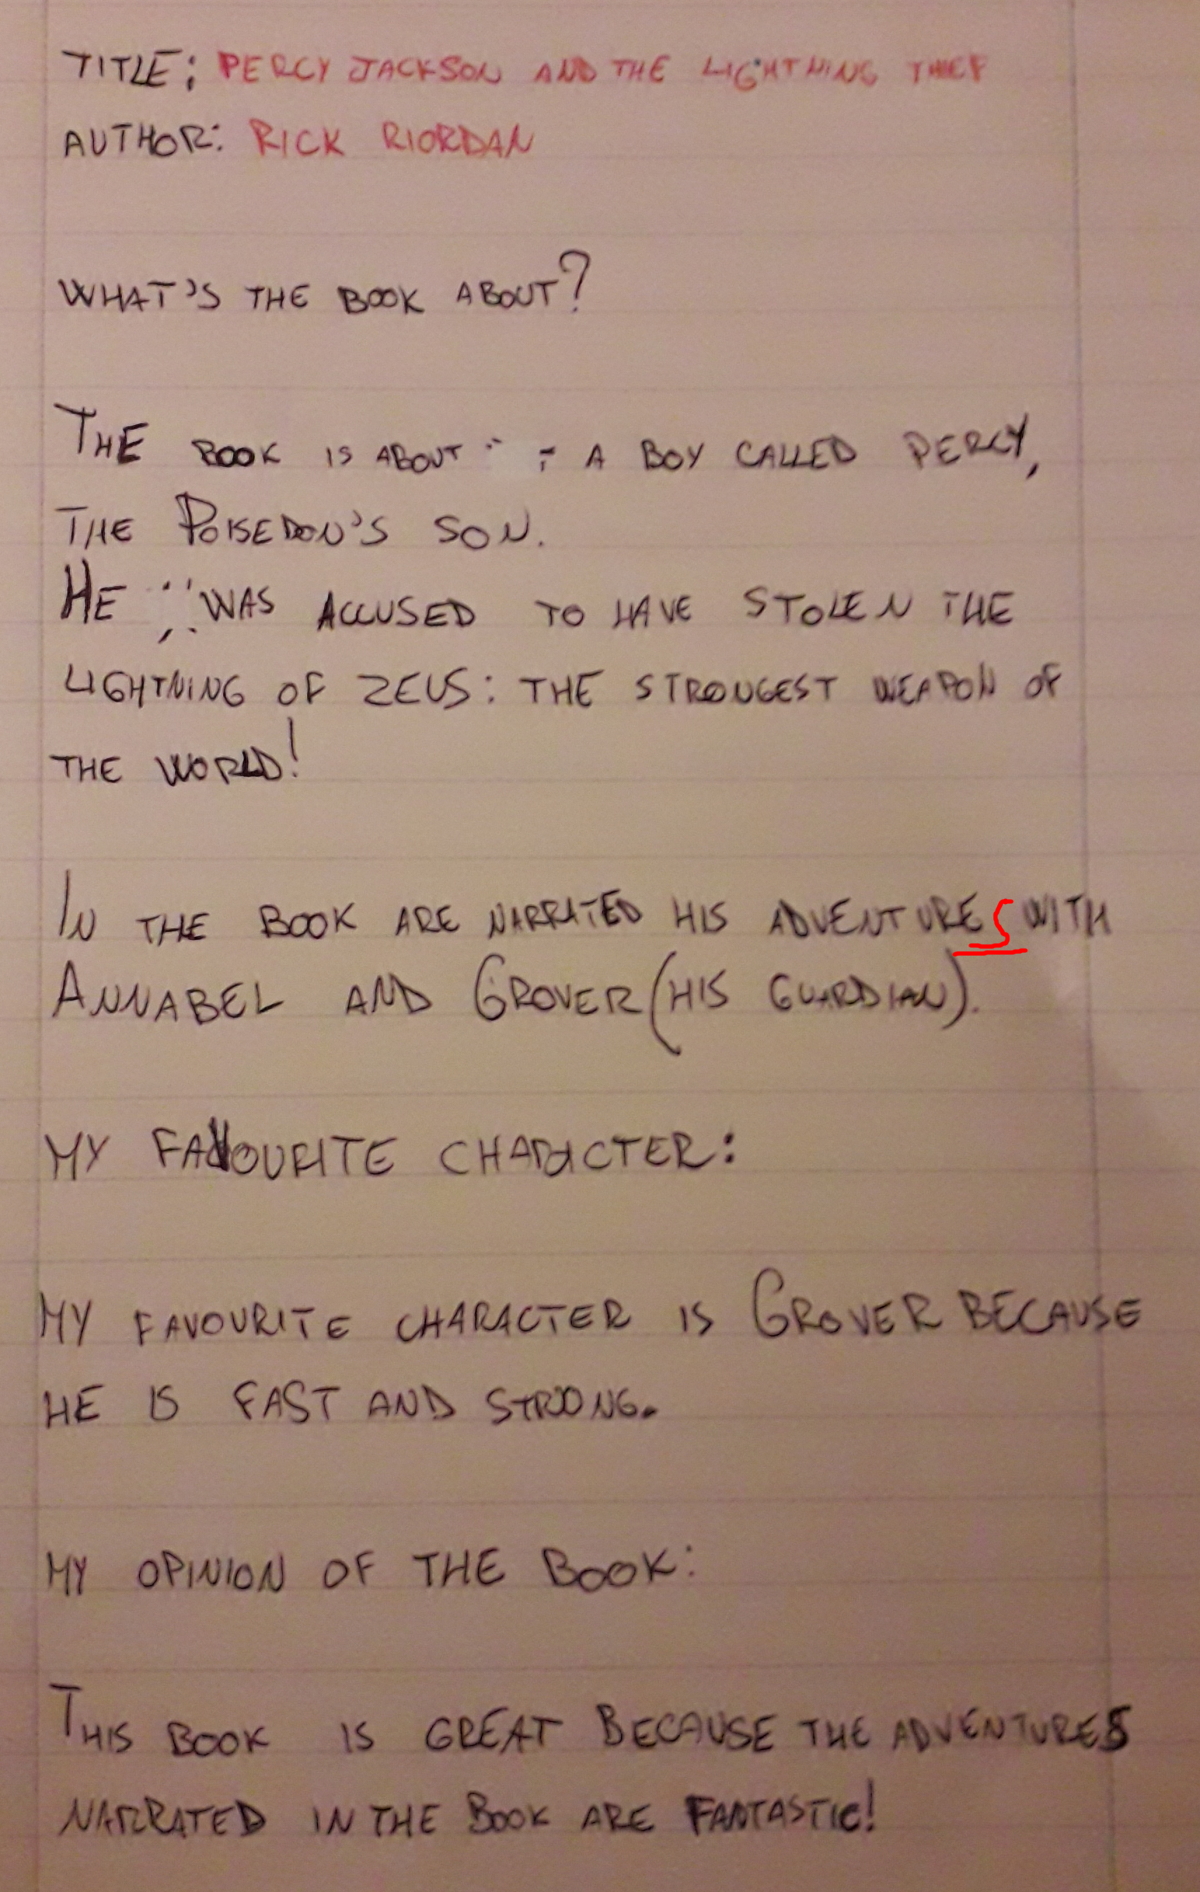 TITLE: PERCY JACKSON AND THE LIGHTNING THIEF
AUTHOR: RICK RIORDAN
WHAT'S THE BOOK ABOUT?
THE BOOK IS ABOUT A BOY CALLED PERCY,
THE POISEDON'S SON.
HE WAS ACCUSED TO HAVE STOLEN THE
LIGHTNING OF ZEUS: THE STRONGEST WEAPON OF
THE WORLD!
IN THE BOOK ARE NARRATED HIS ADVENTURES WITH
ANNABEL AND GROVER (HIS GUARDIAN).
MY FAVOURITE CHARACTER:
MY FAVOURITE CHARACTER IS GROVER BECAUSE
HE IS FAST AND STRONG.
MY OPINION OF THE BOOK:
THIS BOOK IS GREAT BECAUSE THE ADVENTURES
NARRATED IN THE BOOK ARE FANTASTIC!